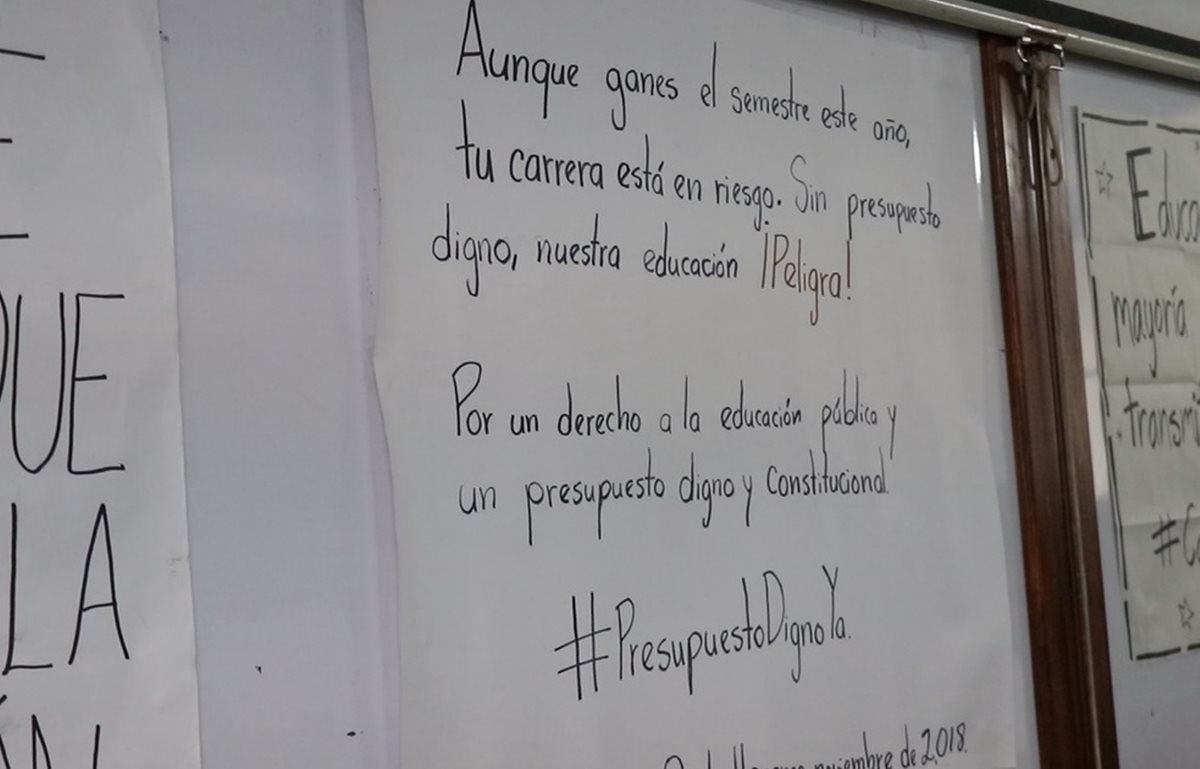 Aunque ganes el semestre este año,
tu carrera está en riesgo. Sin presupuesto
digno, nuestra educación ¡Peligra!
Por un derecho a la educación pública y
un presupuesto digno y Constitucional.
#PresupuestoDignoYa.
noviembre de 2,018.
QUE
LA
mayoría